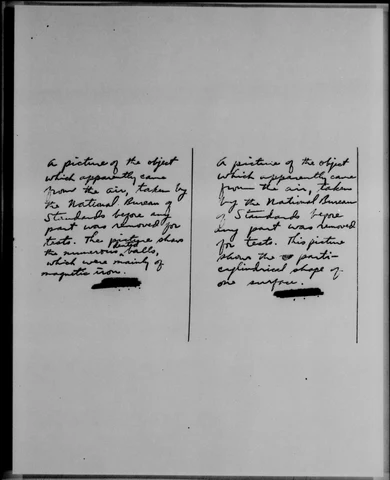 A picture of the object
which apparently came
from the air, taken by
the National Bureau of
Standards before any
part was removed for
tests. The picture shows
the numerous balls,
which were mainly of
magnetic iron.
A picture of the object
which apparently came
from the air, taken
by the National Bureau
of Standards before
any part was removed
for tests. This picture
shows the parti-
cylindrical shape of
one surface.